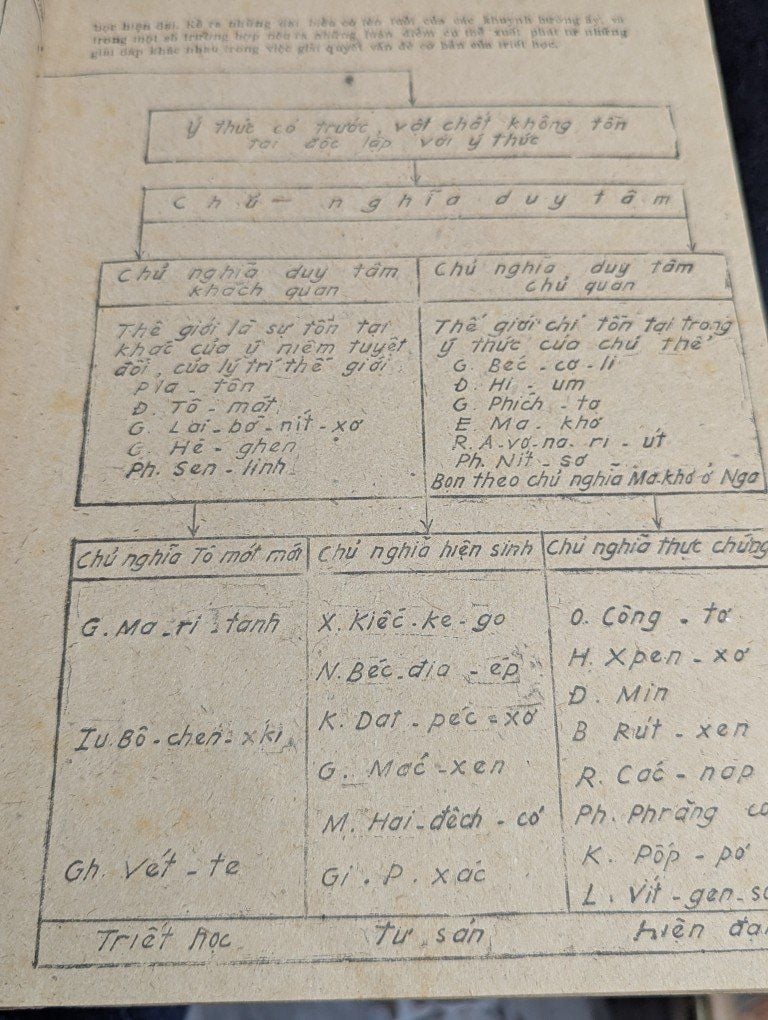 học hiện đại. Kể ra những đại biểu có tên tuổi của các khuynh hướng ấy, và
trong một số trường hợp nêu ra những luận điểm cụ thể xuất phát từ những
giải đáp khác nhau trong việc giải quyết vấn đề cơ bản của triết học.
Ý thức có trước, vật chất không tồn
tại độc lập với ý thức
Chủ - nghĩa duy tâm
Chủ nghĩa duy tâm
khách quan
Thế giới là sự tồn tại
khác của ý niệm tuyệt
đối, của lý trí thế giới
Pla - tôn
D. Tô - mát
G. Lai - bơ - nít - xơ
G. Hê - ghen
Ph. Sen - linh
Chủ nghĩa duy tâm
chủ quan
Thế giới chỉ tồn tại trong
ý thức của chủ thể
G. Béc - cơ - li
Đ. Hi - um
G. Phích - tơ
E. Ma - khơ
R. A - vơ - na - ri - út
Ph. Nít - sơ
Bọn theo chủ nghĩa Ma-khơ ở Nga
Chủ nghĩa Tô mát mới
G. Ma - ri - tanh
Iu. Bô - chen - xki
Gh. Vét - te
Chủ nghĩa hiện sinh
X. Kiếc - ke - go
N. Béc - đia - ép
K. Dat - péc - xơ
G. Mác - xen
M. Hai - đếch - cơ
Gi. P. Xác
Chủ nghĩa thực chứng
O. Công - tơ
H. Xpen - xơ
D. Min
B Rút - xen
R. Các - náp
Ph. Phrăng
K. Pốp - pơ
L. Vít - gen -
Triết học tư sản hiện đại